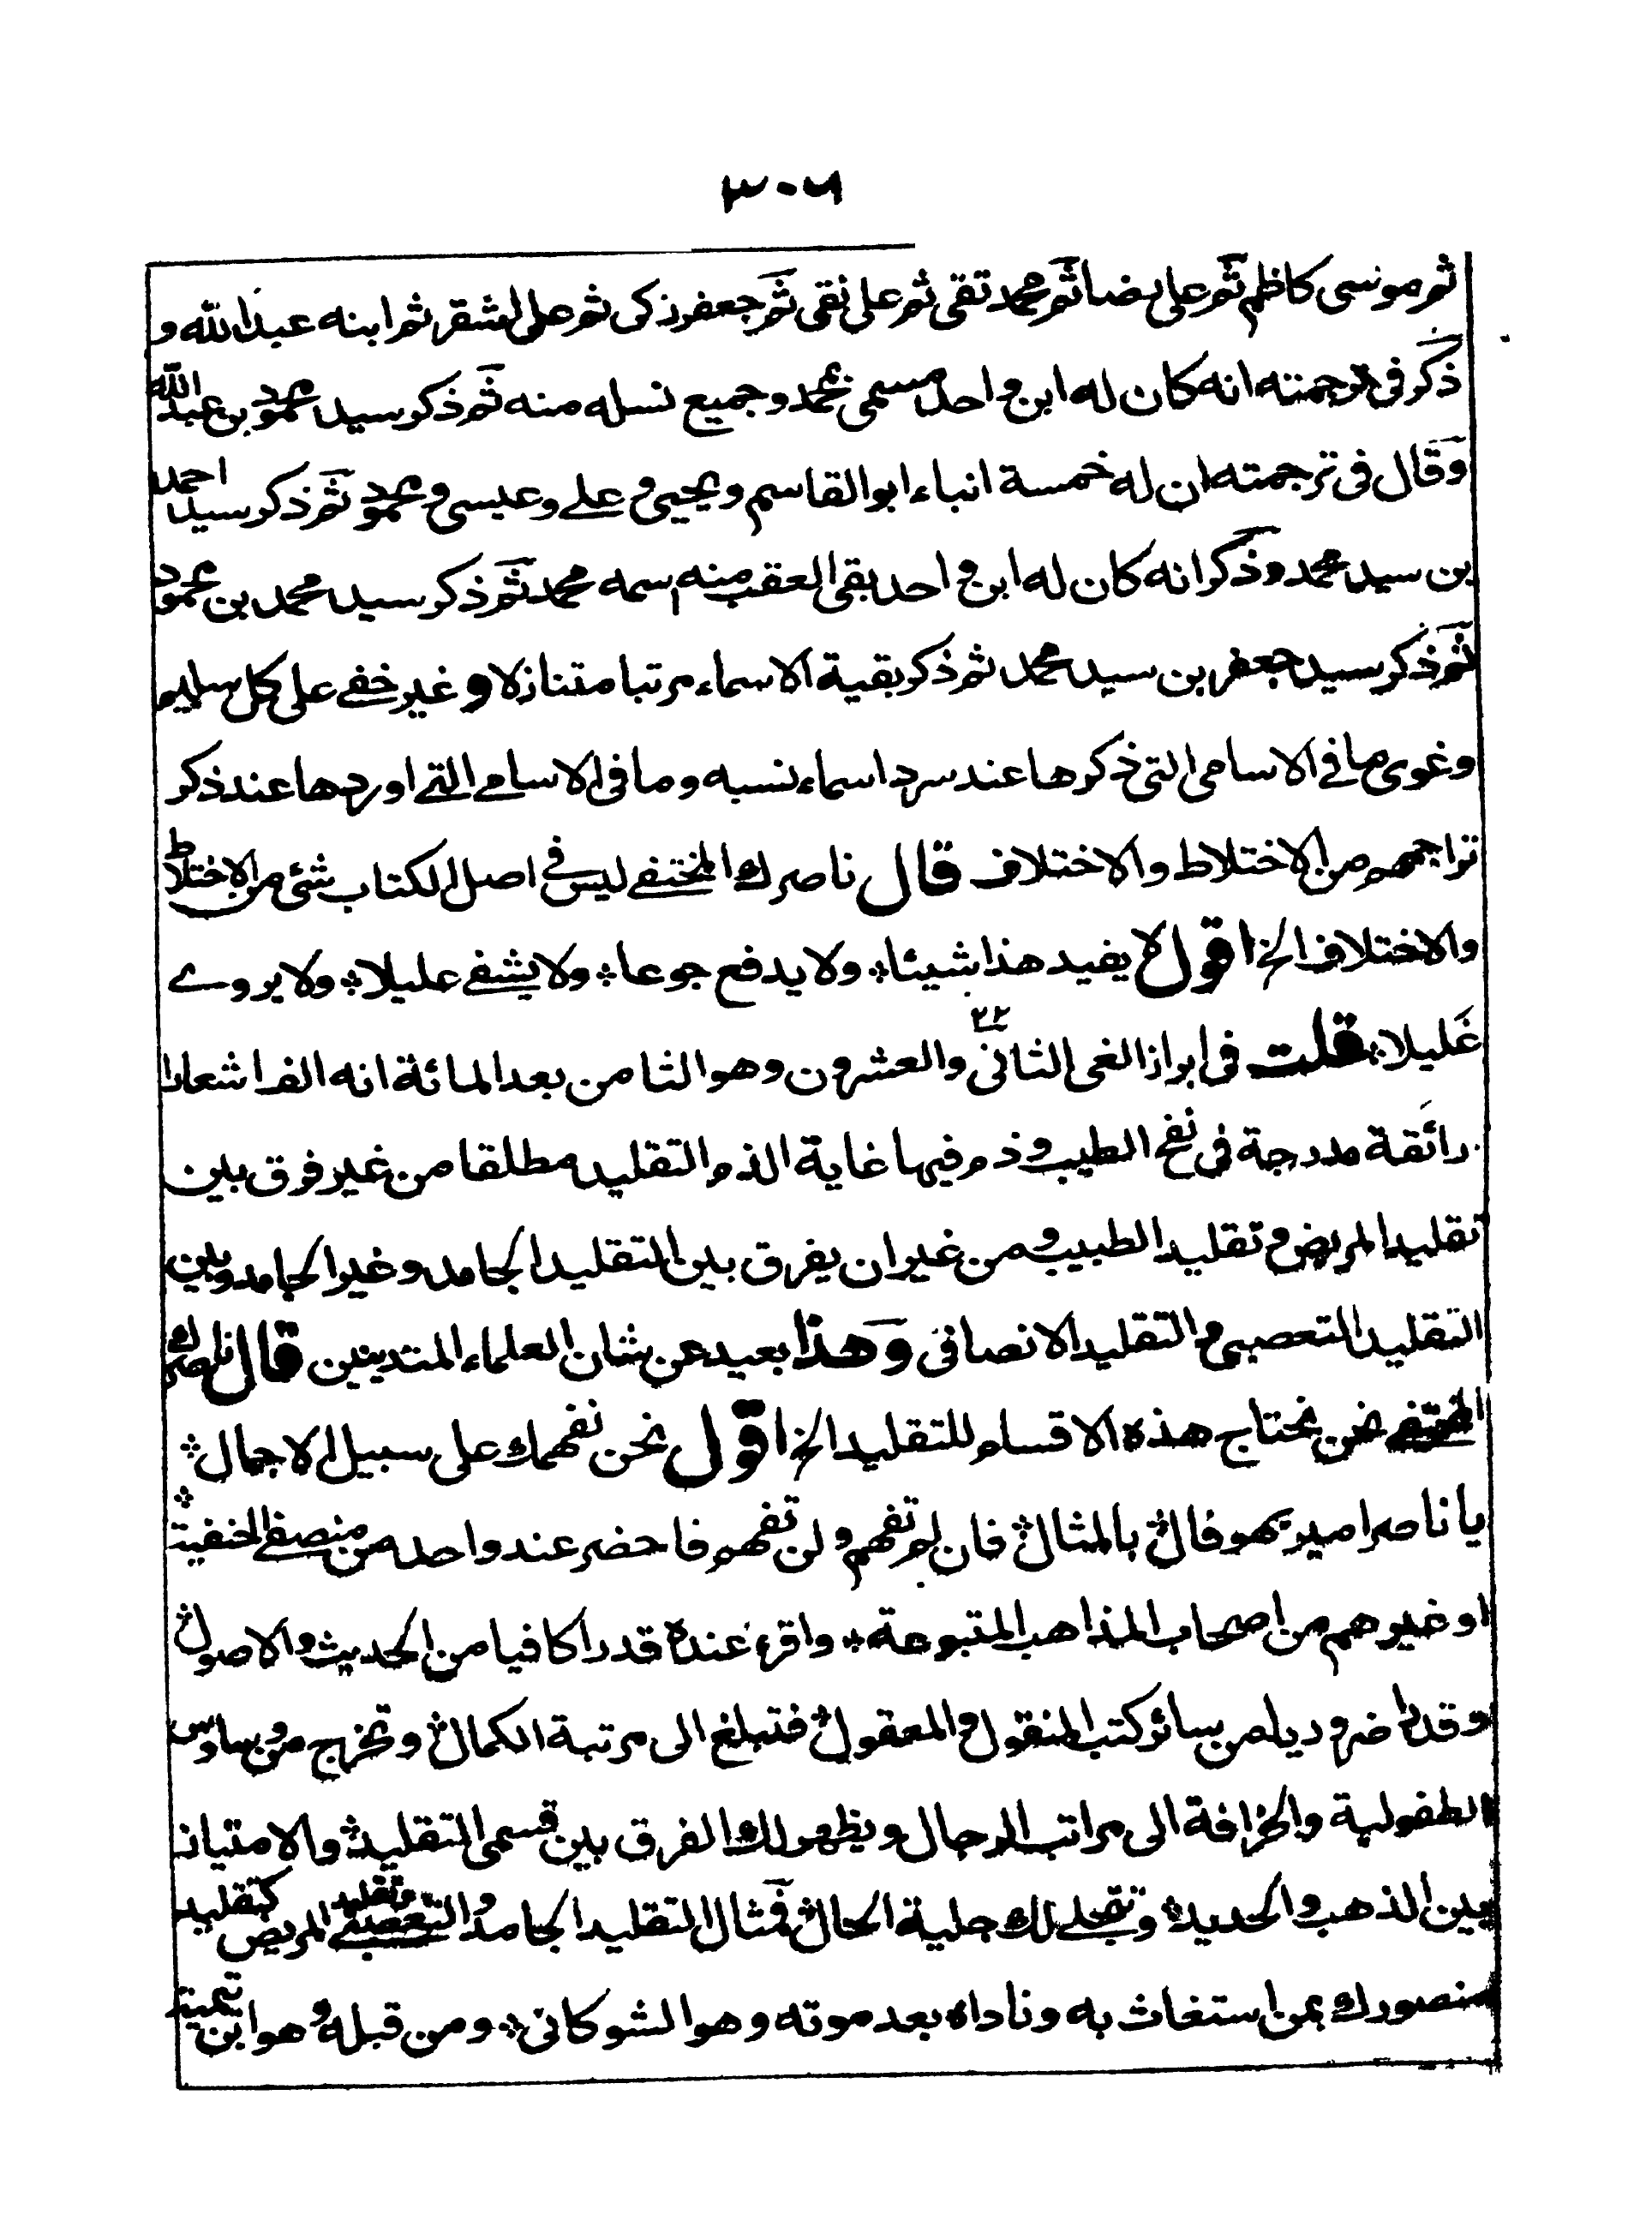 ٣٠٦
ثم موسى كاظم ثم على رضا ثم محمد تقى ثم على نقى ثم جعفر ذكى ثم على اشقر ثم ابنه عبد الله و
ذكر فى ترجمته انه كان له ابن واحد مسمى بمحمد وجميع نسله منه ثم ذكر سيد محمود بن عبد الله
وقال فى ترجمته ان له خمسة ابناء ابو القاسم ويحيى وعلے وعيسى ومحمود ثم ذكر سيد احمد
بن سيد محمد وذكر انه كان له ابن واحد بقى العقب منه اسمه محمد ثم ذكر سيد محمد بن محمود
ثم ذكر سيد جعفر بن سيد محمد ثم ذكر بقية الاسماء مرتبا متنازلا و غير خفے على كل سليم
وغوى ما فے الاسامى التى ذكرها عند سرد اسماء نسبه وما فى الاسامے التے اوردها عند ذكر
تراجمهم من الاختلاط والاختلاف قال ناصرك المختفے ليس فے اصل الكتاب شئ من الاختلاط
والاختلاف الخ اقول لا يفيد هذا شيئا ؞ ولا يدفع جوعا ؞ ولا يشفے عليلا ؞ ولا يروے
غليلا ؞ قلت فى ابراز الغى الثانى ٢٢ والعشرون وهو الثامن بعد المائة انه الف اشعارا
رائقة مدرجة فى نفح الطيب وذم فيها غاية الذم التقليد مطلقا من غير فرق بين
تقليد المريض وتقليد الطبيب ومن غير ان يفرق بين التقليد الجامد وغير الجامد وبين
التقليد التعصبى والتقليد الانصافى وهذا بعيد عن شان العلماء المتدينين قال ناصرك
المختفے نحن نحتاج هذه الاقسام للتقليد الخ اقول نحن نفهمك على سبيل الاجمال ؞
يا ناصر امير بهوفال ؞ بالمثال ؞ فان لم تفهم ولن تفهم فاحضر عند واحد من منصفے الحنفية ؞
او غيرهم من اصحاب المذاهب المتبوعة ؞ واقرء عنده قدرا كافيا من الحديث والاصول ؞
وقدرا ضروديا من سائر كتب المنقول والمعقول ؞ فتبلغ الى مرتبة الكمال ؞ وتخرج من وساوس
الطفولية والخرافة الى مراتب الرجال ويظهر لك الفرق بين قسمى التقليد ؞ والامتياز
بين الذهب والحديد ؞ وتنجلے لك جلية الحال ؞ فمثال التقليد الجامد والتعصبے وتقليد المريض كتقليد
منصورك بمن استغاث به وناداه بعد موته وهو الشوكانى ؞ ومن قبله وهو ابن تيمية